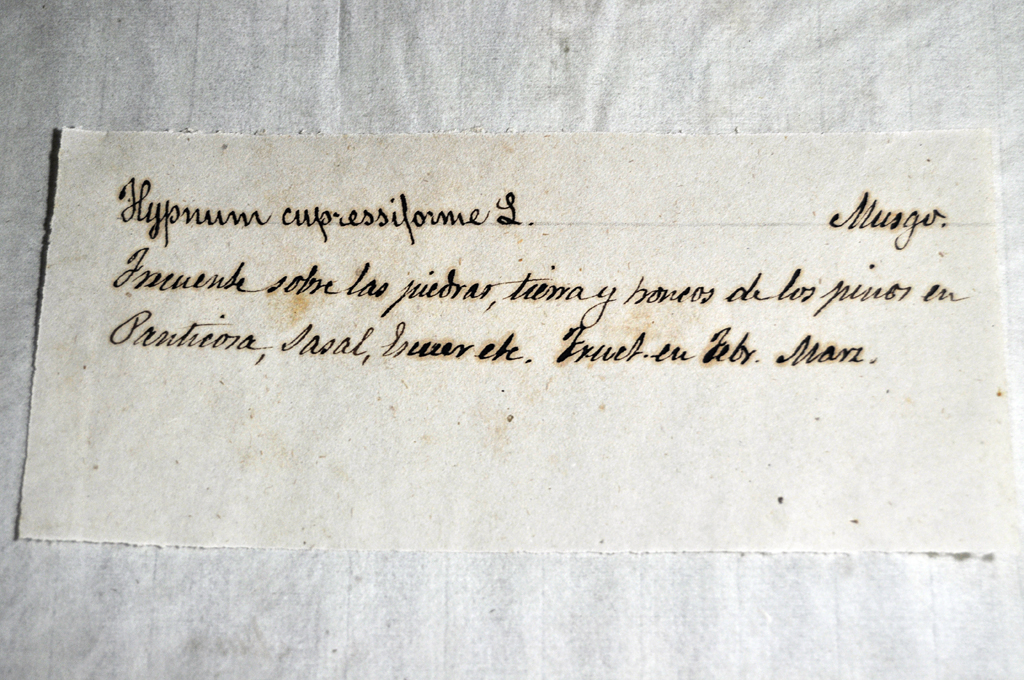 Hypnum cupressiforme L. Musgo.
Frecuente sobre las piedras, tierra y troncos de los pinos en
Panticosa, Sasal, etc. Fruct. en Febr. Marz.